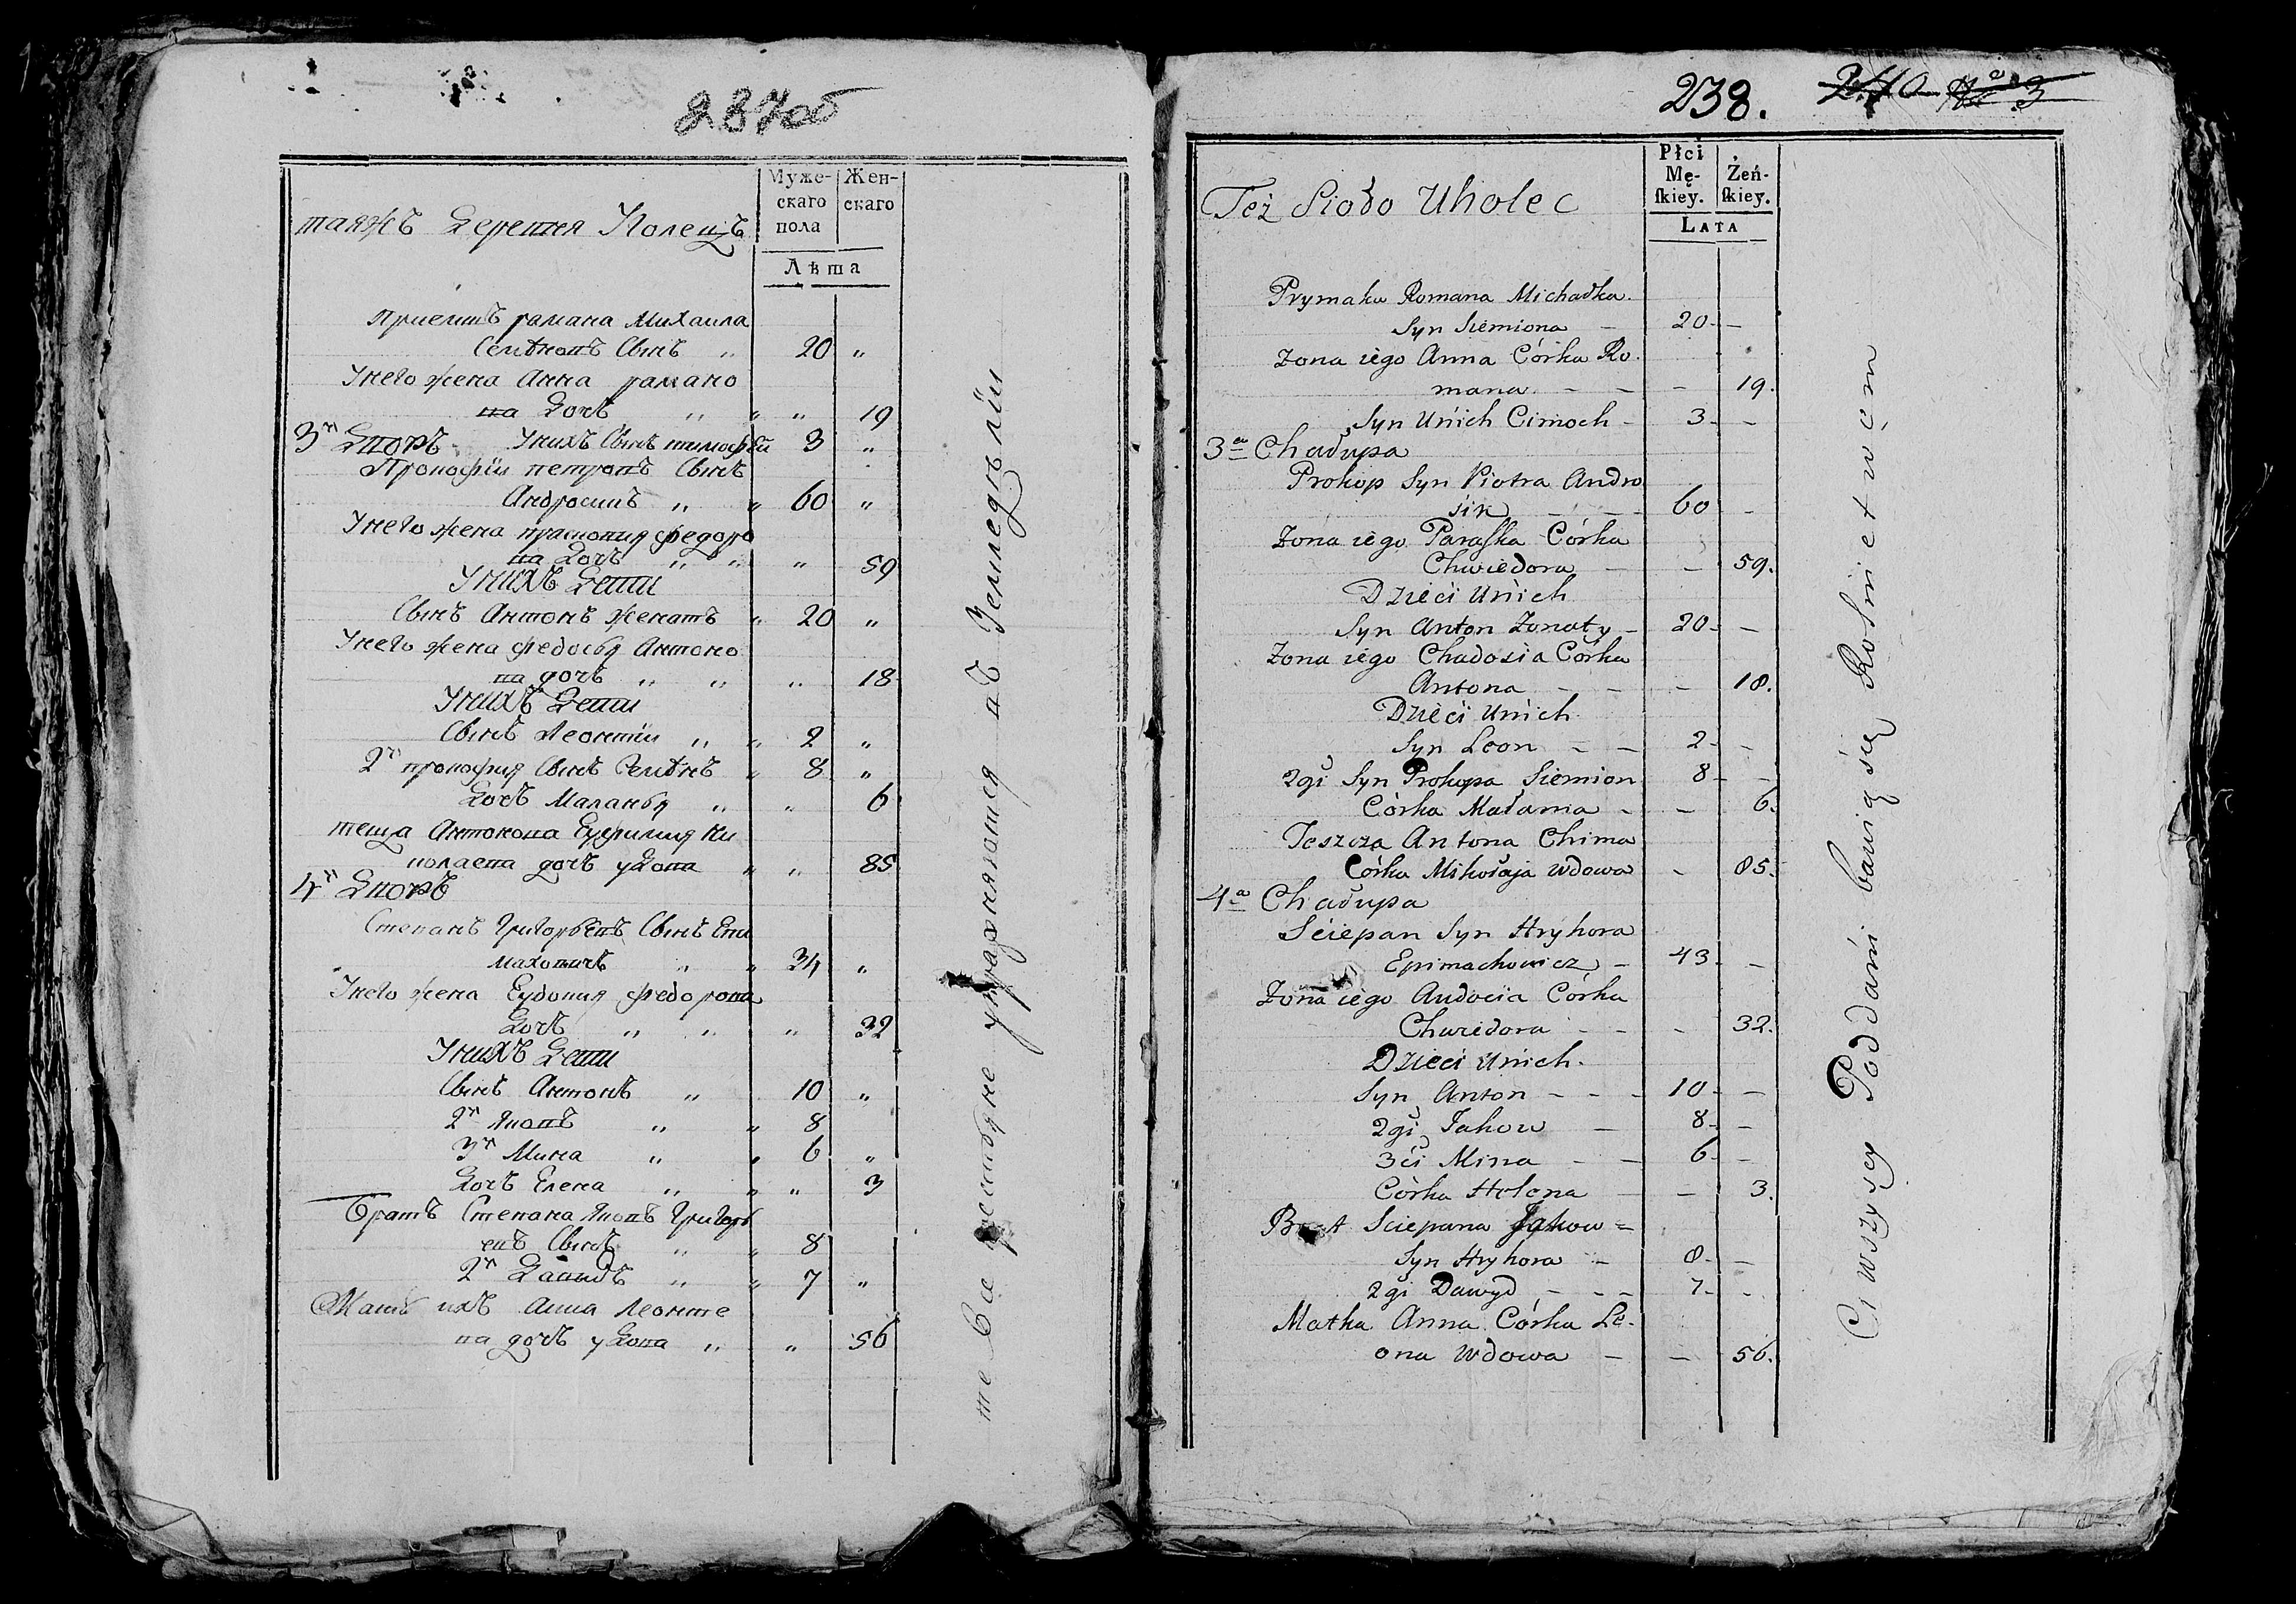 237об
таяжъ Деревня Уголецъ
Муже-
скаго
пола
Жен-
скаго
Лѣта
приемшъ рамана Михаила
Семѣновъ Сынъ „ 20 „
Унего жена Анна рамано
ва Дочь „ „ „ 19
3й Дворъ Унихъ Сынъ тимофѣй 3 „
Прокофїи петровъ Сынъ
Андросикъ „ „ 60 „
Унего жена прасковия федоро
ва Дочь „ „ „ 59
Унихъ Дети
Сынъ Антонъ женатъ „ 20 „
Унего жена федосья Антоно
ва дочь „ „ „ 18
Унихъ Дети
Сынъ Леонтїи „ „ 2 „
2й прокофия Сынъ Семѣнъ „ 8 „
Дочь Маланья „ „ 6
теща Антонова Еуфимия Ни
колаева дочь удова „ „ 85
4й Дворъ
Степанъ Григорьевъ Сынъ Епи
маховичъ „ „ 34 „
Унего жена Еудокия федорова
Дочь „ „ „ 32
Унихъ Дети
Сынъ Антонъ „ 10 „
2й Яковъ „ „ 8
3й Мина „ „ 6 „
Дочь Елена „ „ „ 3
Братъ Степана Яковъ Григорь
евъ Сынъ „ „ 8
2й Давидъ „ „ 7 „
Мать ихъ Анна Леонте
ва дочь удова „ „ 56
те Все крестьяне упражняются въ Земледѣлїи
238.
240 Na 3
Też Sioło Uholec
Płci
Mę-
skiey.
Żeń-
skiey.
LATA
Prymaka Romana Michałka
Syn Siemiona – 20 –
Żona iego Anna Córka Ro
mana – – – 19.
Syn Unich Cimoch – 3 –
3a Chałupa
Prokop Syn Piotra Andro
sik – – – 60 –
Żona iego Paraska Córka
Chwiedora – – 59.
Dzieci Unich
Syn Anton Żonaty – 20 –
Żona iego Chadosia Córka
Antona – – – 18.
Dzieci Unich
Syn Leon – – 2 –
2gi Syn Prokopa Siemion 8 –
Córka Małania – – 6.
Teszcza Antona Chima
Córka Mikołaja Wdowa – 85.
4a Chałupa
Sciepan Syn Hryhora
Epimachowicz – 43 –
Żona iego Audocia Córka
Chwiedora – – – 32.
Dzieci Unich
Syn Anton – – – 10 –
2gi Jakow – 8 –
3ci Mina – – 6 –
Córka Holena – – 3.
Brat Sciepana Jakow =
Syn Hryhora – 8 –
2gi Dawyd – – – 7 –
Matka Anna Córka Le
ona Wdowa – – 56.
Ci wszyscy Poddani bawią się Rolnictwem